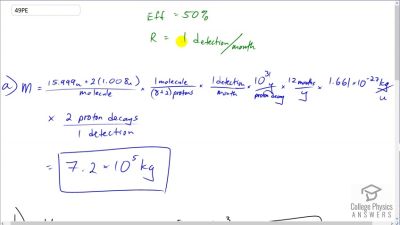 49PE
Eff = 50%
R = 1 detection/month
a) m = (15.999u + 2(1.008u))/molecule × 1 molecule/(8+2) protons × 1 detection/month × 10^31 y/proton decay × 12 months/y × 1.661×10^-27 kg/u
× 2 proton decays/1 detection
= 7.2 × 10^5 kg
College Physics
ANSWERS